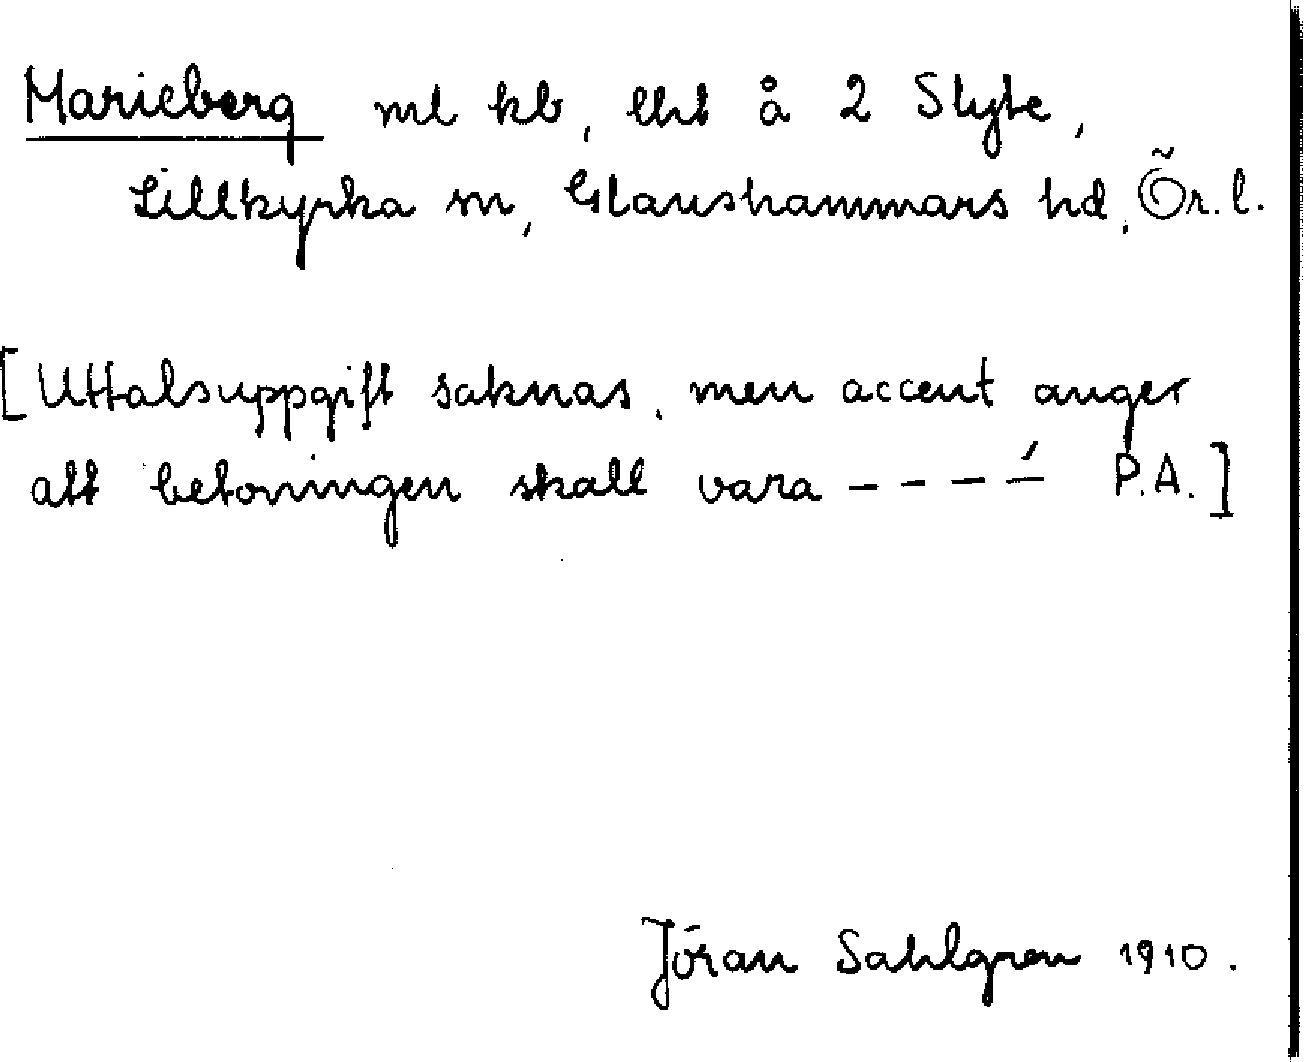 Marieberg ml kb, lht å 2 Slyte,
Lillkyrka sn, Glanshammars hd, Ör. l.
[Uttalsuppgift saknas, men accent anger
att betoningen skall vara – – – –́ P.A.]
Jöran Sahlgren 1910.